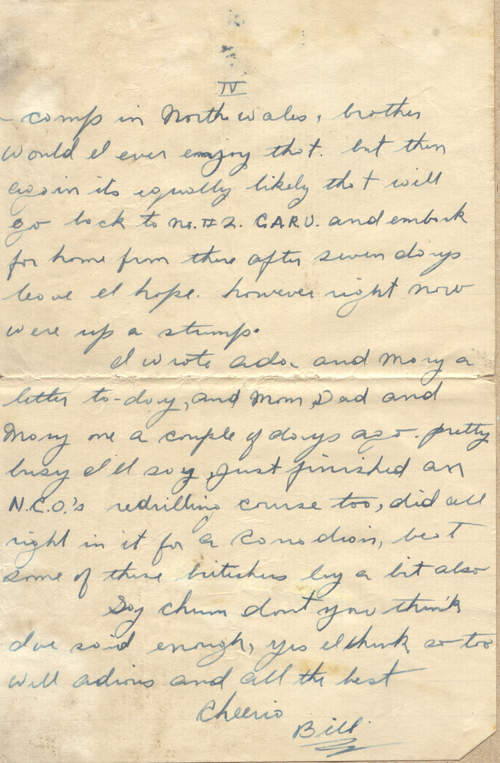 IV
- camp in North wales, brother
would I ever enjoy that. but then
again its equally likely that will
go back to No. #2. C.A.R.U. and embark
for home from there after seven days
leave I hope. however right now
were up a stump.
I wrote ada, and Mary a
letter to-day, and Mom, Dad and
Mary one a couple of days ago. pretty
busy I'll say, Just finished an
N.C.O.'s redrilling course too, did all
right in it for a Canadian, beat
some of these britishers by a bit also
Say chum dont you think
I've said enough, yes I think so too
will adios and all the best
Cheerio
Bill.